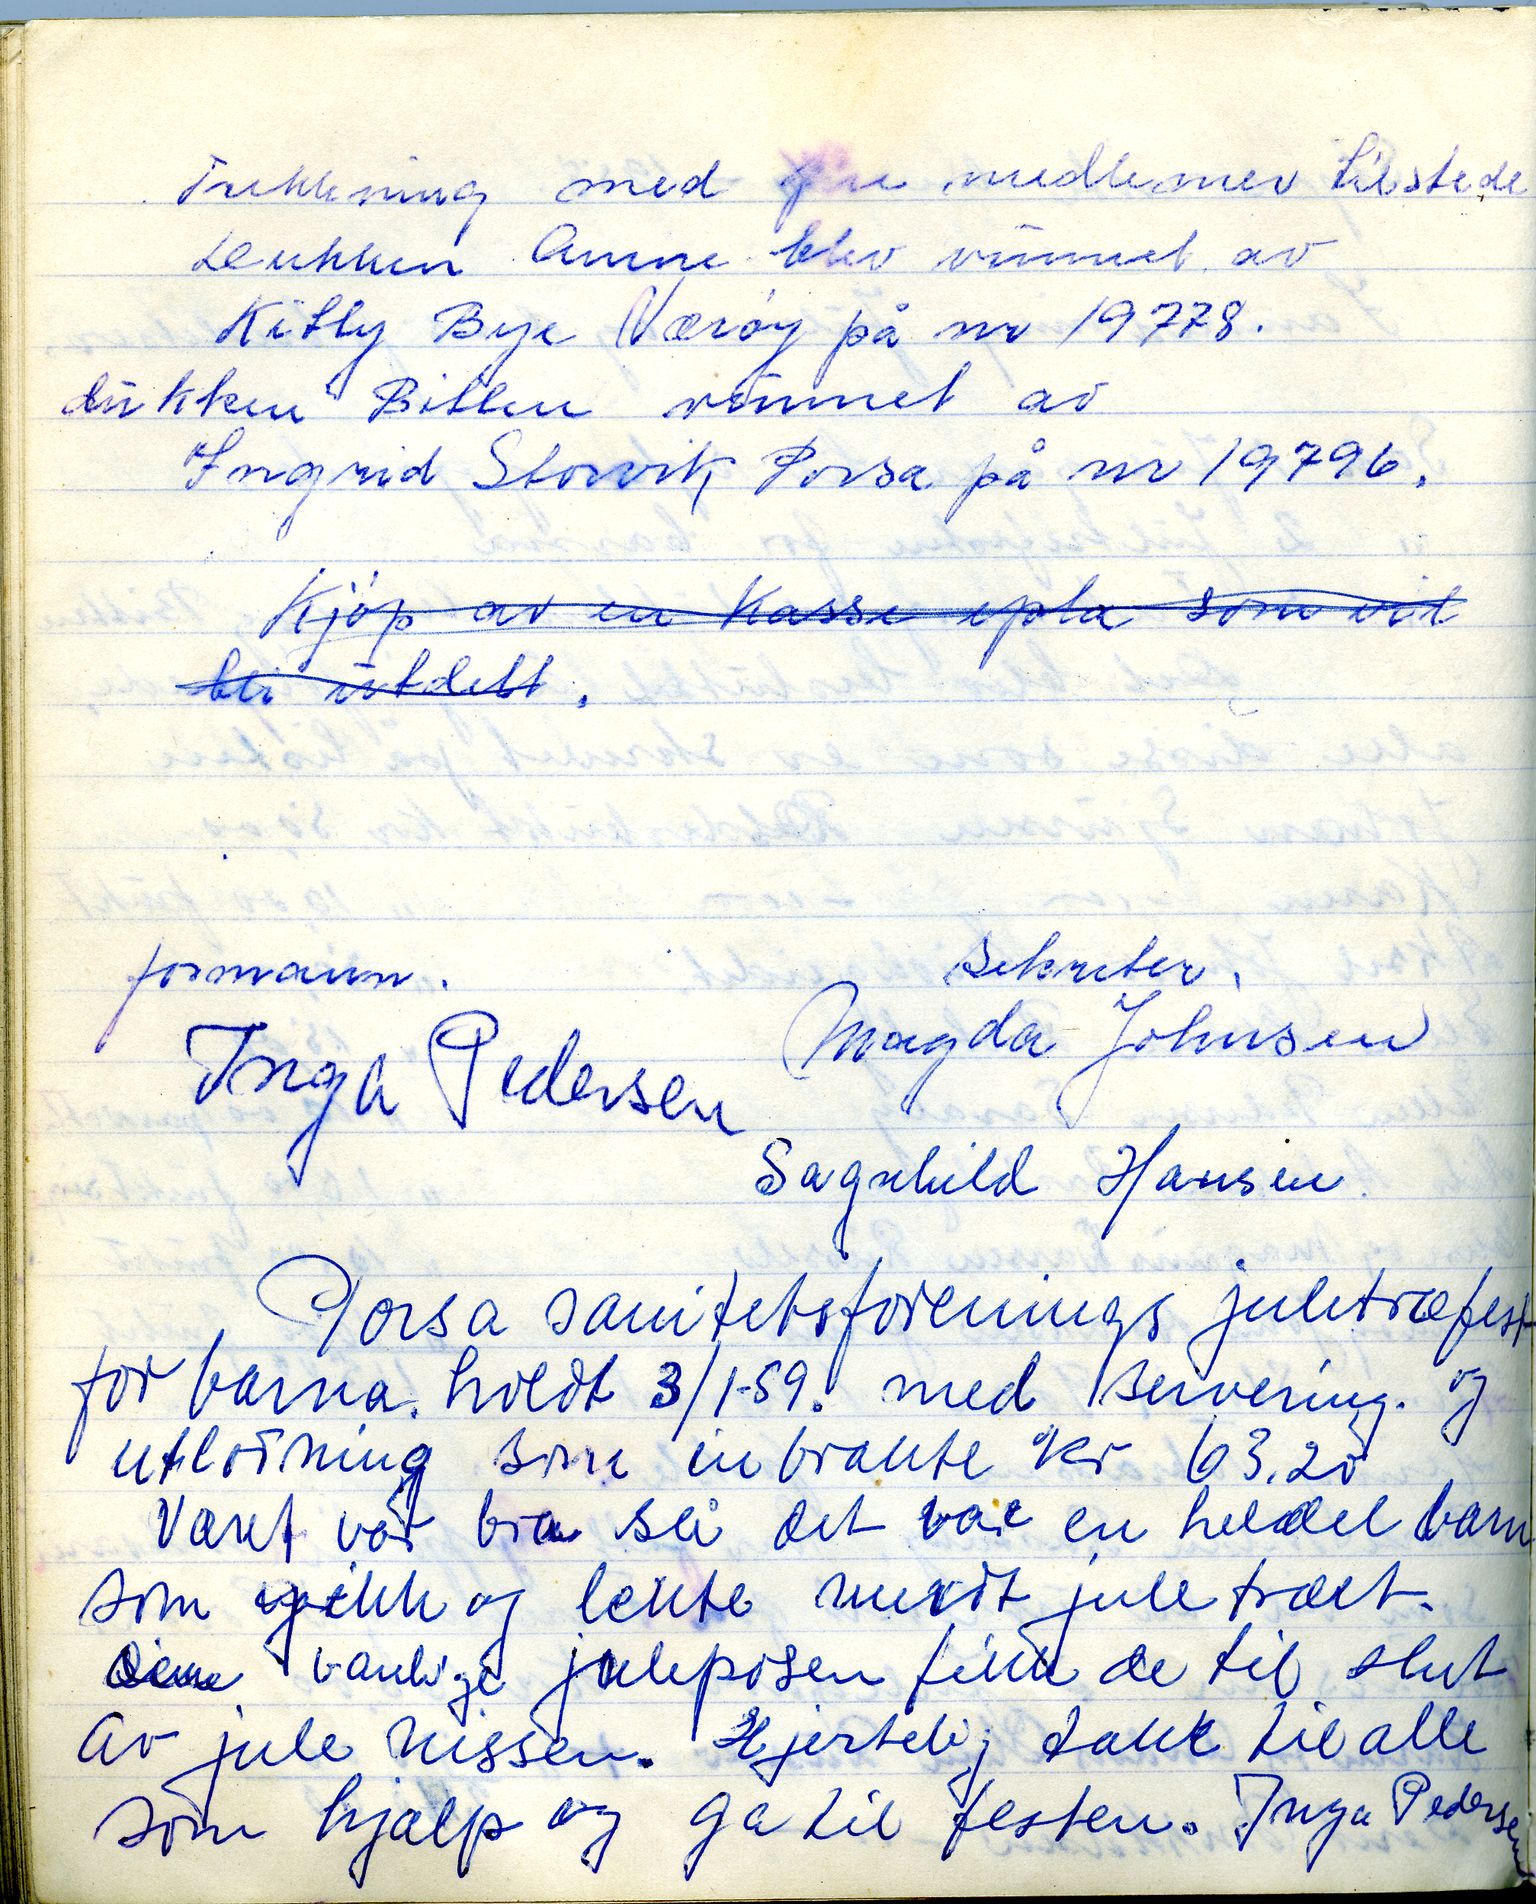 Trekkning med fire medlemer tilstede
Dukken Anne blev vunnet av
Kitty Bye Værøy på nr 19778.
dukken Bitten vunnet av
Ingrid Storvik Porsa på nr 19796.
Kjøp av en Kasse epla som vil
bli utdelt.
formann. Sekretær.
Inga Pedersen Magda Johnsen
Sagnhild Hansen
Porsa sanitetsforenings juletræfest
for barna. holdt 3/1-59. med servering. og
utlodning som inbrakte kr 63,20
Været var bra så det var en heldel barn
som gikk og lekte rundt jule træet.
den vanlige juleposen fikk de til slut
av jule nissen. Hjertelig takk til alle
som hjalp og ga til festen. Inga Pedersen